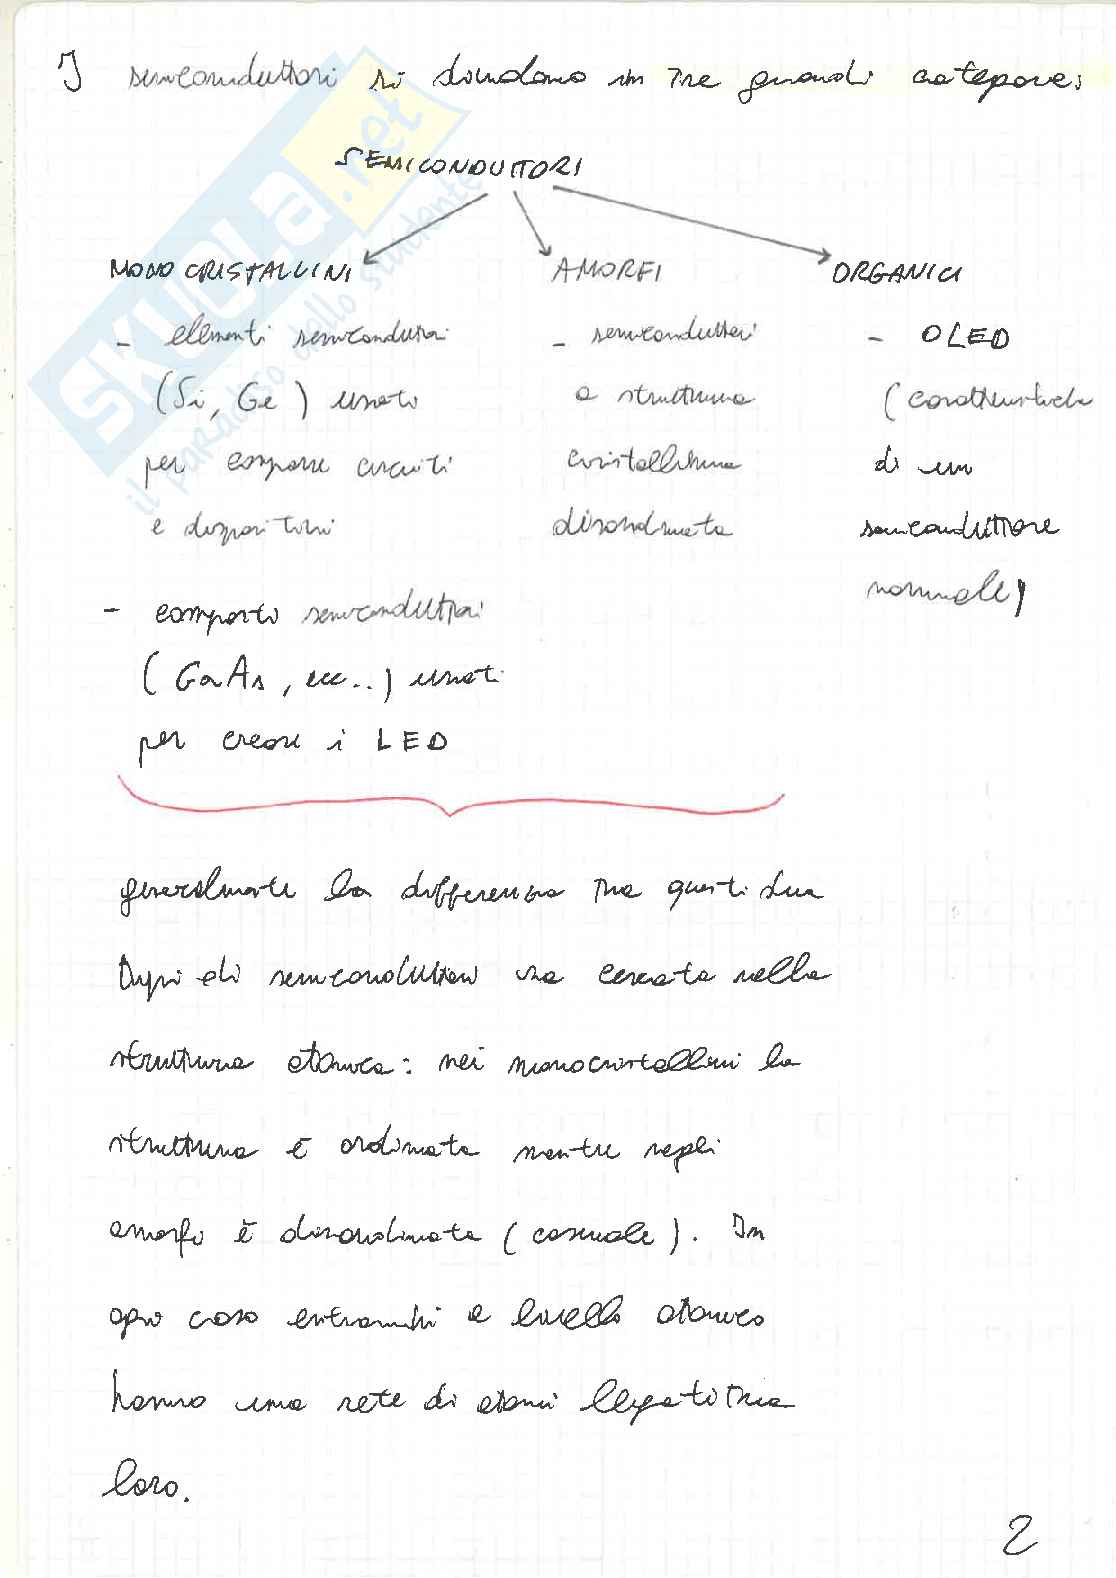 I semiconduttori si dividono in tre grandi categorie:
SEMICONDUTTORI
MONOCRISTALLINI
- elementi semiconduttori
(Si, Ge) usato
per comporre circuiti
e dispositivi
- composto semiconduttori
(GaAs, ecc..) usati
per creare i LED
AMORFI
- semiconduttori
a struttura
cristallina
disordinata
ORGANICI
- OLED
(caratteristiche
di un
semiconduttore
normale)
generalmente la differenza tra questi due
tipi di semiconduttori va cercata nella
struttura atomica: nei monocristallini la
struttura è ordinata mentre negli
amorfi è disordinata (casuale). In
ogni caso entrambi a livello atomico
hanno una rete di atomi legati tra
loro.
2
SKUOLA.net
il paradiso dello studente